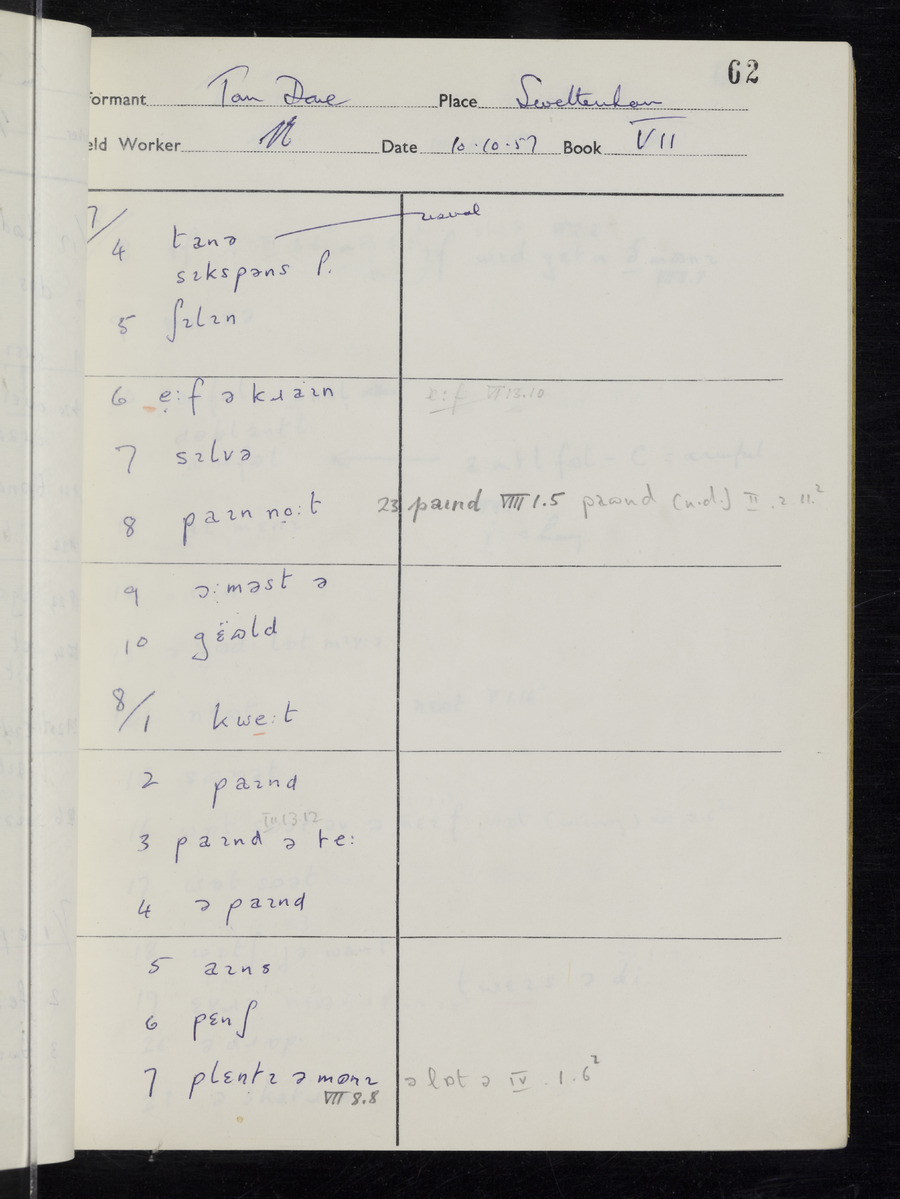 62
formant Tom Dale Place Swettenham
eld Worker Date 10.10.57 Book VII
7/
4 tanə usual
sɪkspəns ʃ.
5 ʃɪlɪn
6 e̞:f ə kɹaɪn e:f VI 13.10
7 sɪlvə
8 paɪn no̞:t 23 paɪnd VIII 1.5 paʊnd (n.d.) II . 2 11.²
9 ɔ:məst ə
10 gëɷld
8/1 kwe:t
2 paɪnd
3 paɪnd ə te: III 13 12
4 ə paɪnd
5 aɪns
6 pɛnʃ
7 plɛntɪ ə mɒnɪ ə lɒt ə IV . 1 . 6²
VII 8.8